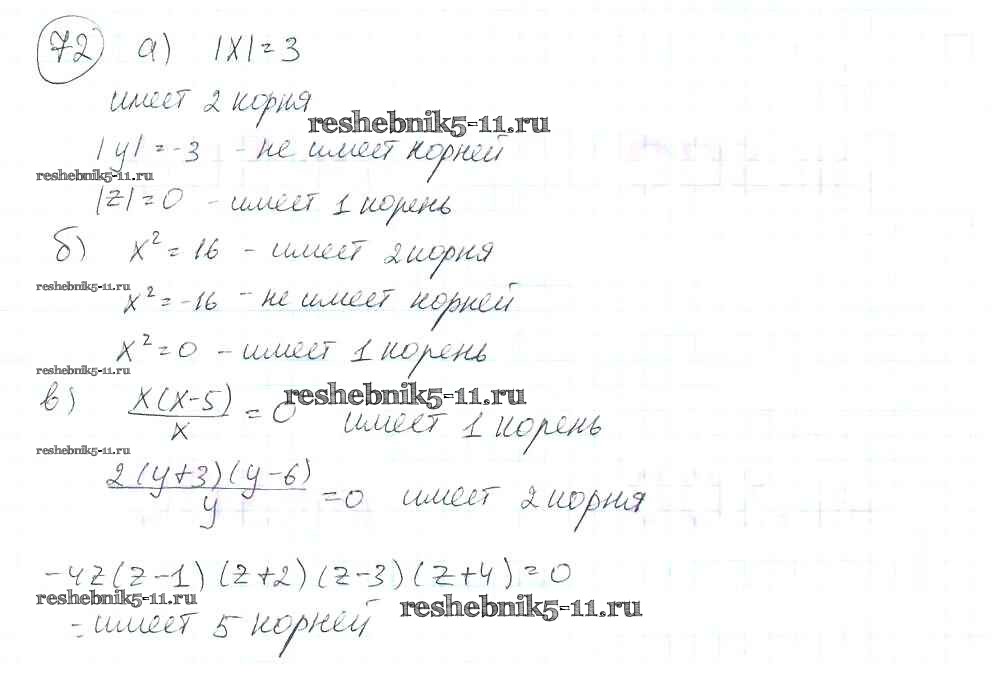 72 а) |x| = 3
имеет 2 корня
reshebnik5-11.ru
|y| = -3 - не имеет корней
reshebnik5-11.ru
|z| = 0 - имеет 1 корень
б) x² = 16 - имеет 2 корня
reshebnik5-11.ru
x² = -16 - не имеет корней
x² = 0 - имеет 1 корень
reshebnik5-11.ru
reshebnik5-11.ru
в) x(x-5)/x = 0 имеет 1 корень
reshebnik5-11.ru
2(y+3)(y-6)/y = 0 имеет 2 корня
-4z(z-1)(z+2)(z-3)(z+4) = 0
reshebnik5-11.ru
reshebnik5-11.ru
- имеет 5 корней